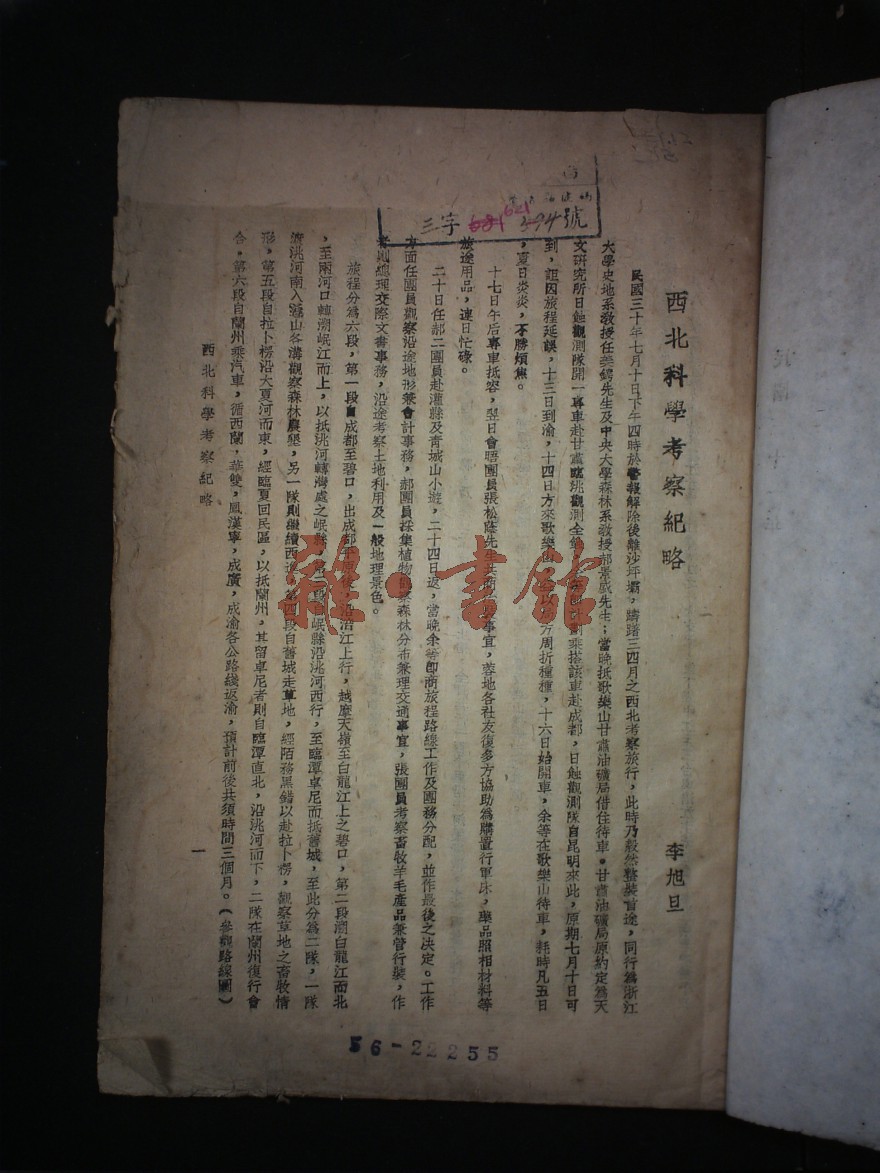 西北科學考察紀略
李旭旦
民國三十年七月十日下午四時於警報解除後離沙坪壩，躊躇三四月之西北考察旅行，此時乃毅然整裝首途，同行爲浙江
大學史地系教授任美鍔先生及中央大學森林系教授郝景盛先生；當晚抵歌樂山甘肅油礦局借住待車。甘肅油礦局原約定爲天
文研究所日蝕觀測隊開一專車赴甘肅臨洮觀測全蝕，乘搭該車赴成都，日蝕觀測隊自昆明來此，原期七月十日可
到，詎因旅程延誤，十三日到渝，十四日方來歌樂山，周折種種，十六日始開車，余等在歌樂山待車，耗時凡五日
，夏日炎炎，不勝煩焦。
十七日午后專車抵容，翌日會晤團員張松蔭先生，事宜，蓉地各社友復多方協助爲購置行軍床，藥品照相材料等
旅途用品，連日忙碌。
二十日任郝二團員赴灌縣及青城山小遊，二十四日返，當晚余等卽商旅程路線工作及團務分配，並作最後之決定。工作
方面任團員觀察沿途地形兼會計事務，郝團員採集植物觀察森林分布兼理交通事宜，張團員考察畜牧羊毛產品兼管行裝，作
者則總理交際文書事務，沿途考察土地利用及一般地理景色。
旅程分爲六段，第一段自成都至碧口，出成都平原後，沿涪江上行，越摩天嶺至白龍江上之碧口，第二段溯白龍江而北
，至兩河口轉溯岷江而上，以抵洮河轉灣處之岷縣，第三段自岷縣沿洮河西行，至臨潭卓尼而抵舊城，至此分爲二隊，一隊
濟洮河南入疊山各溝觀察森林農墾，另一隊則繼續西進，第四段自舊城走草地，經陌務黑錯以赴拉卜楞，觀察草地之畜牧情
形，第五段自拉卜楞沿大夏河而東，經臨夏回民區，以抵蘭州，其留卓尼者則自臨潭直北，沿洮河而下，二隊在蘭州復行會
合。第六段自蘭州乘汽車，循西蘭，華雙，鳳漢寧，成廣，成渝各公路綫返渝，預計前後共須時間三個月。（參觀路線圖）
西北科學考察紀略
一
三字 681 621 號
56-22255
雜·書館